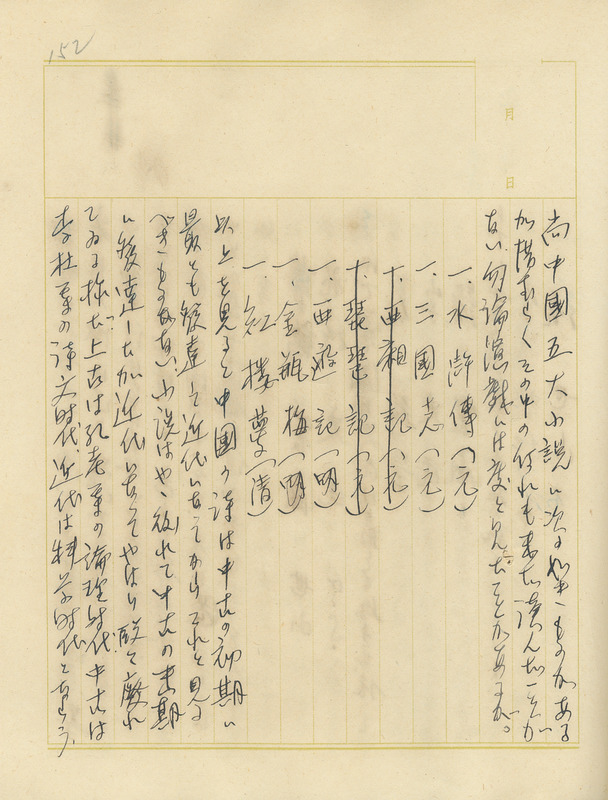 152
月 日
尚中國五大小説に次の如きものがある
が惜むらくその中の何れも未だ讀んだことが
ない勿論演戯には度々見たことがあるが。
一、水滸傳（元）
一、三國志（元）
一、西廂記（元）
一、琵琶記（元）
一、西遊記（明）
一、金瓶梅（明）
一、紅樓夢（清）
以上を見ると中國の詩は中古の初期に
最とも發達し近代にあってからこれと見る
べきものがない小説はやゝ後れて中古の末期
に發達したが近代にあってやはり廢れ
てゐる様だ上古は孔老等の論理時代中古は
李杜等の詩文時代、近代は科学時代となろう、